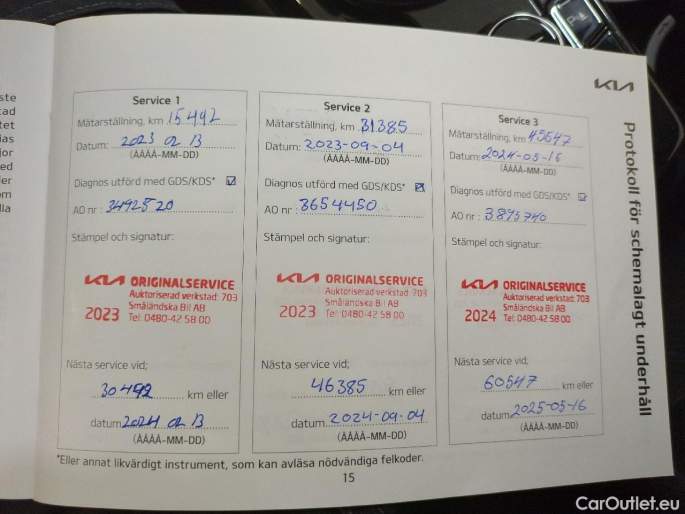 KIA
Protokoll för schemalagt underhåll
Service 1
Mätarställning, km 15492
Datum: 2023 02 13
(ÅÅÅÅ-MM-DD)
Diagnos utförd med GDS/KDS*
AO nr: 3492520
Stämpel och signatur:
KIA ORIGINALSERVICE
Auktoriserad verkstad: 703
Småländska Bil AB
2023 Tel: 0480-42 58 00
Nästa service vid;
30492 km eller
datum 2024 02 13
(ÅÅÅÅ-MM-DD)
Service 2
Mätarställning, km 31385
Datum: 2023-09-04
(ÅÅÅÅ-MM-DD)
Diagnos utförd med GDS/KDS*
AO nr: 3654450
Stämpel och signatur:
KIA ORIGINALSERVICE
Auktoriserad verkstad: 703
Småländska Bil AB
2023 Tel: 0480-42 58 00
Nästa service vid;
46385 km eller
datum 2024-09-04
(ÅÅÅÅ-MM-DD)
Service 3
Mätarställning, km 45547
Datum: 2024-05-16
(ÅÅÅÅ-MM-DD)
Diagnos utförd med GDS/KDS*
AO nr: 3895740
Stämpel och signatur:
KIA ORIGINALSERVICE
Auktoriserad verkstad: 703
Småländska Bil AB
2024 Tel: 0480-42 58 00
Nästa service vid;
60547 km eller
datum 2025-05-16
(ÅÅÅÅ-MM-DD)
*Eller annat likvärdigt instrument, som kan avläsa nödvändiga felkoder.
15
CarOutlet.eu